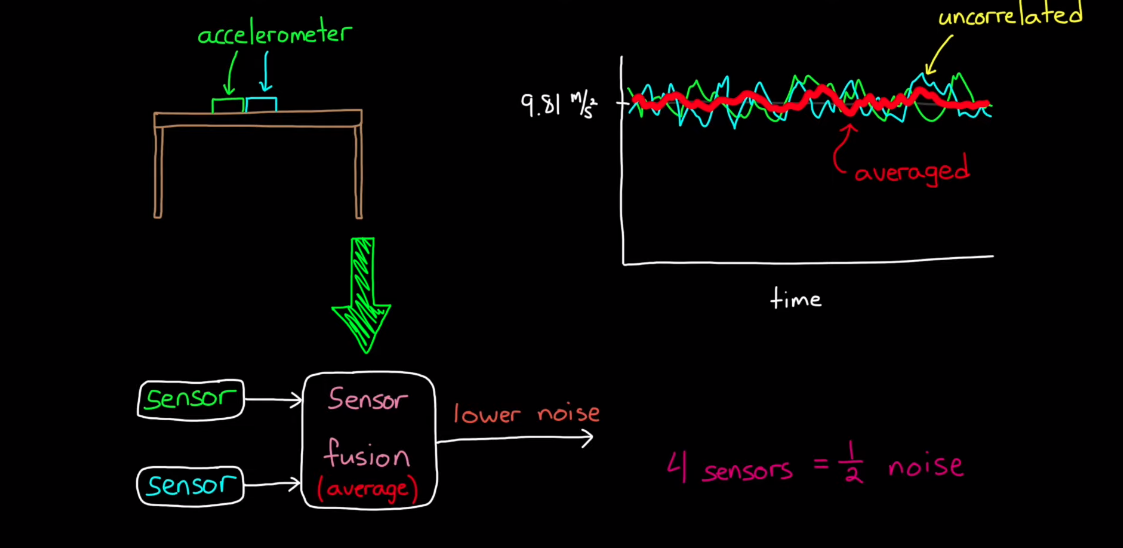 accelerometer
uncorrelated
9.81 m/s²
averaged
time
sensor
sensor
Sensor
fusion
(average)
lower noise
4 sensors = 1/2 noise